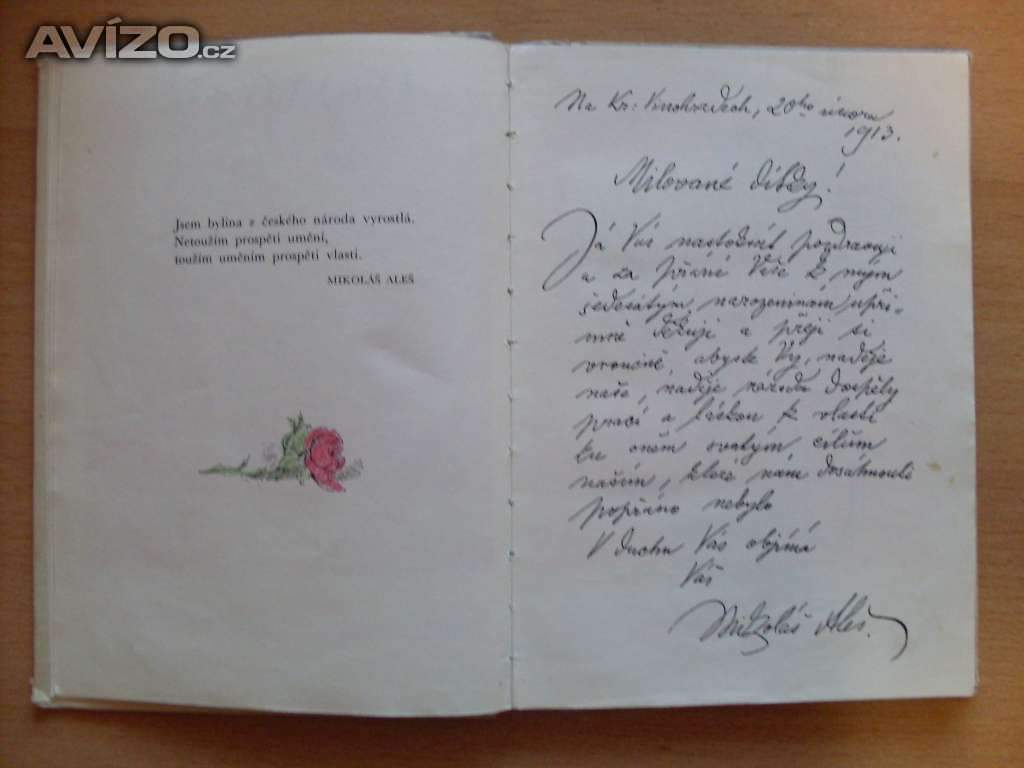 AVÍZO.cz
Jsem bylina z českého národa vyrostlá.
Netoužím prospěti umění,
toužím uměním prospěti vlasti.
MIKOLÁŠ ALEŠ
Na Kr: Vinohradech, 20ho února
1913.
Milované dítky!
Já Vás nastokrát pozdravuji
a za přání Vaše k mým
šedesátým narozeninám upří-
mně děkuji a přeji si
vroucně, abyste Vy, naděje
naše, naděje národa dospěly
prací a láskou k vlasti
ku oněm svatým cílům
našim, které nám dosáhnouti
popřáno nebylo
V duchu Vás objímá
Váš
Mikoláš Aleš.